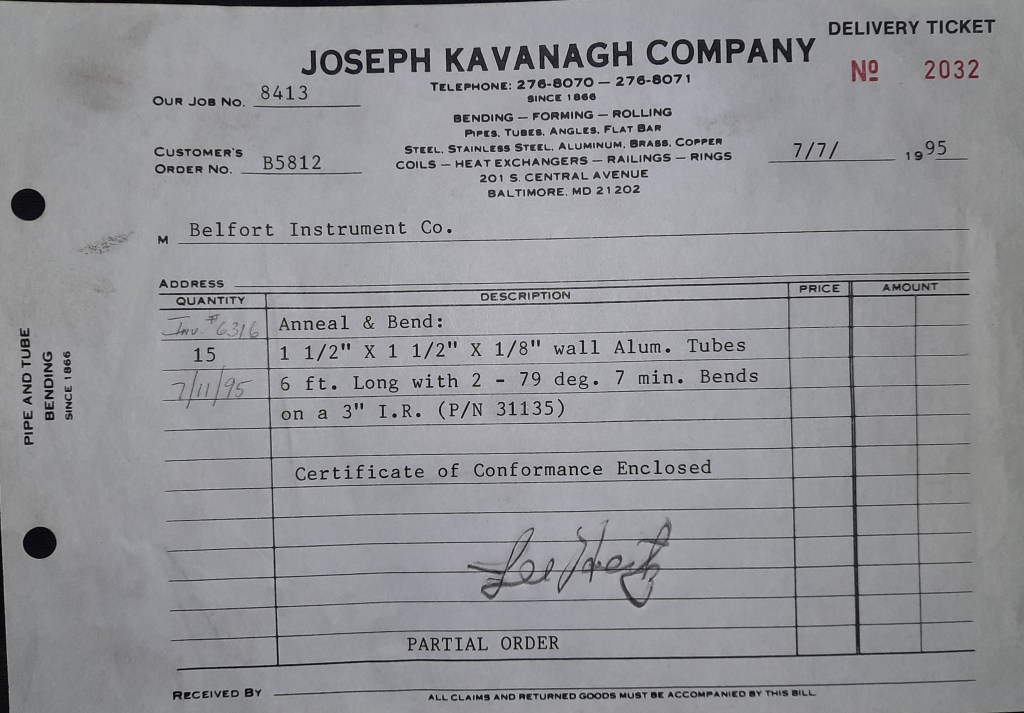 DELIVERY TICKET
JOSEPH KAVANAGH COMPANY
Nº 2032
TELEPHONE: 276-8070 — 276-8071
SINCE 1866
OUR JOB NO. 8413
BENDING — FORMING — ROLLING
PIPES, TUBES, ANGLES, FLAT BAR
STEEL, STAINLESS STEEL, ALUMINUM, BRASS, COPPER
CUSTOMER'S
ORDER NO. B5812
COILS — HEAT EXCHANGERS — RAILINGS — RINGS
7/7/ 1995
201 S. CENTRAL AVENUE
BALTIMORE, MD 21202
M Belfort Instrument Co.
ADDRESS
QUANTITY DESCRIPTION PRICE AMOUNT
Inv. #6316 Anneal & Bend:
15 1 1/2" X 1 1/2" X 1/8" wall Alum. Tubes
7/11/95 6 ft. Long with 2 - 79 deg. 7 min. Bends
on a 3" I.R. (P/N 31135)
Certificate of Conformance Enclosed
PARTIAL ORDER
RECEIVED BY
ALL CLAIMS AND RETURNED GOODS MUST BE ACCOMPANIED BY THIS BILL.
PIPE AND TUBE
BENDING
SINCE 1866